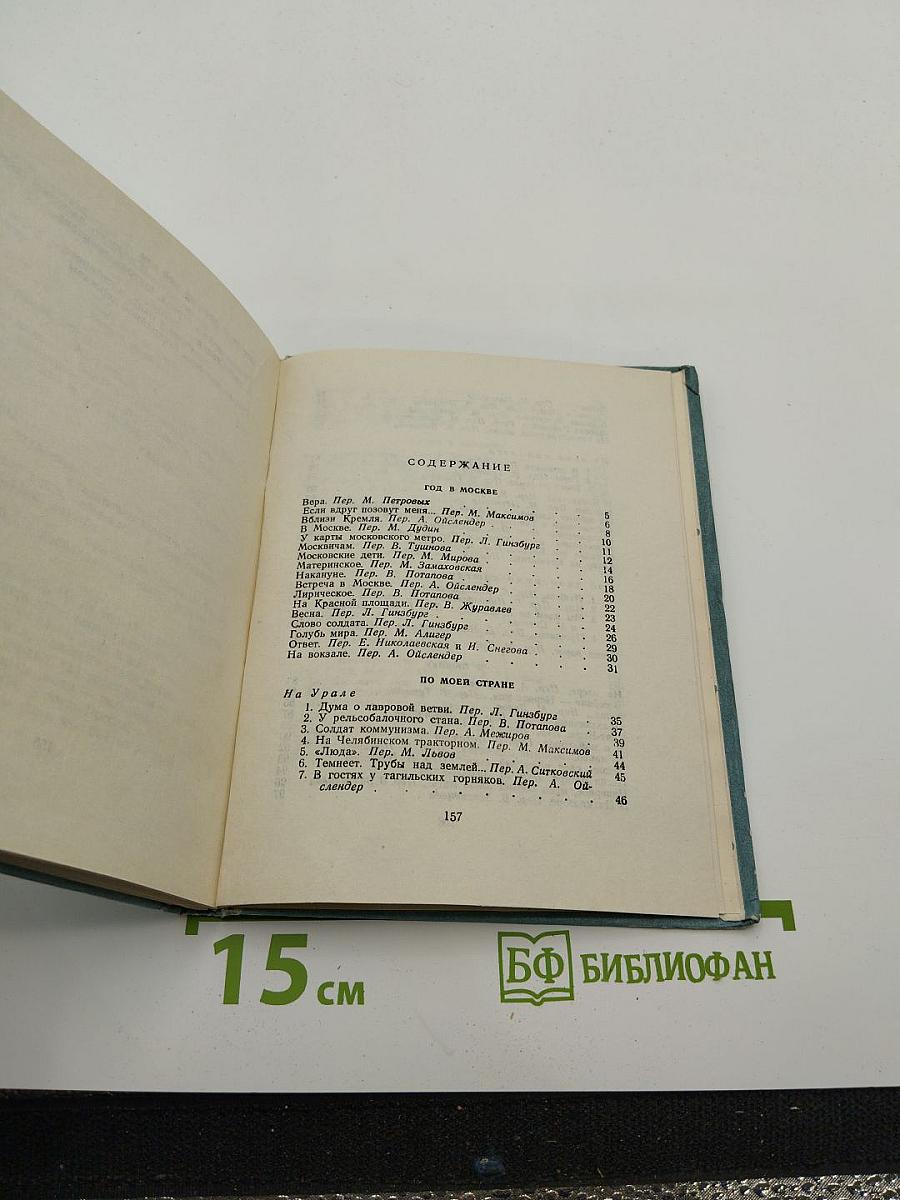 СОДЕРЖАНИЕ
ГОД В МОСКВЕ
Вера. Пер. М. Петровых . . . . . 5
Если вдруг позовут меня... Пер. М. Максимов . . 6
Вблизи Кремля. Пер. А. Ойслендер . . . . 8
В Москве. Пер. М. Дудин . . . . . 10
У карты московского метро. Пер. Л. Гинзбург . . 11
Москвичам. Пер. В. Тушнова . . . . . 12
Московские дети. Пер. М. Мирова . . . . 14
Материнское. Пер. М. Замаховская . . . . 16
Накануне. Пер. В. Потапова . . . . . 18
Встреча в Москве. Пер. А. Ойслендер . . . 20
Лирическое. Пер. В. Потапова . . . . . 22
На Красной площади. Пер. В. Журавлев . . . 23
Весна. Пер. Л. Гинзбург . . . . . 24
Слово солдата. Пер. Л. Гинзбург . . . . 26
Голубь мира. Пер. М. Алигер . . . . . 29
Ответ. Пер. Е. Николаевская и И. Снегова . . 30
На вокзале. Пер. А. Ойслендер . . . . 31
ПО МОЕЙ СТРАНЕ
На Урале
1. Дума о лавровой ветви. Пер. Л. Гинзбург . 35
2. У рельсобалочного стана. Пер. В. Потапова . 37
3. Солдат коммунизма. Пер. А. Межиров . . 39
4. На Челябинском тракторном. Пер. М. Максимов 41
5. «Люда». Пер. М. Львов . . . . . 44
6. Темнеет. Трубы над землей... Пер. А. Ситковский 45
7. В гостях у тагильских горняков. Пер. А. Ой-
слендер . . . . . . . . 46
157
15 см
БФ БИБЛИОФАН